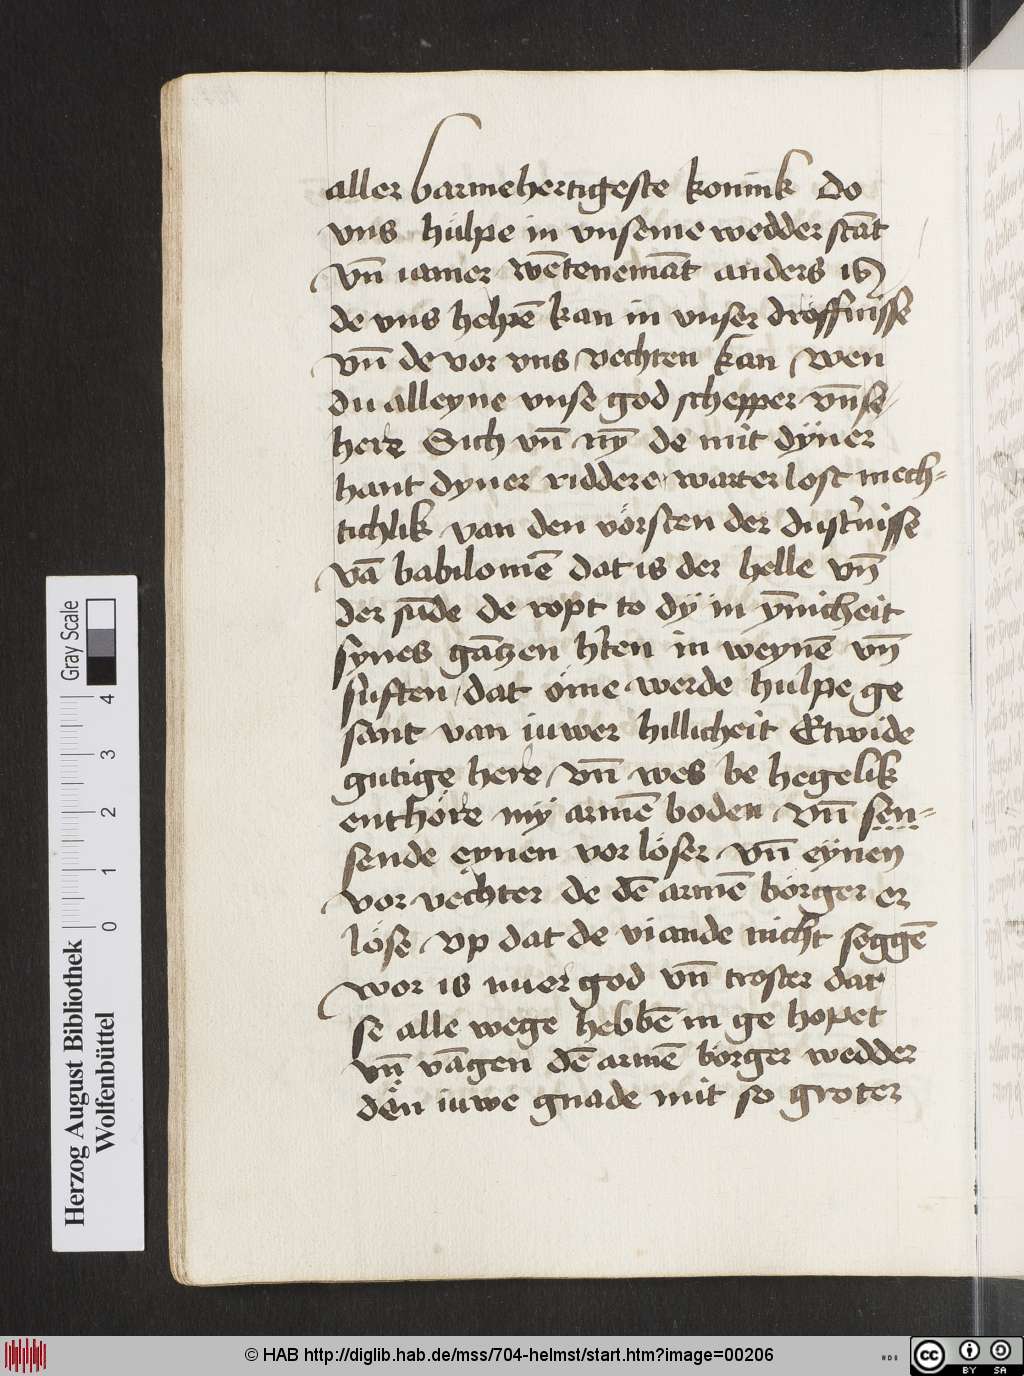 aller barmehertigeste konink do
vns hülpe in vnseme wedder stāt
vn̄ iamer wētenemāt anders is
de vns helpē kan in vnser dröffnisse
vn̄ de vor vns vechten kan wen
du alleyne vnse god schepper vn̄se
here Sich vn̄ nȳ de mit dÿner
hant dyner riddere warter lost mech-
tichlik van den vörsten der dust'nisse
vā babilonien̄ dat is der helle vn̄
der sūde de ropt to dÿ in ȳnicheit
synes gāzen h'ten in weynē vn̄
suften dat öme werde hulpe ge
sant van iuwer hillicheit Etwide
gutige here vn̄ wes be hegelik
enthöre mÿ armē boden vn̄ sen-
sende eynen vor löser vn̄ eÿnen
vor vechter de dē armē börger er
löse vp dat de viande nicht seggē
wor is iuer god vn̄ troster dar
se alle wege hebbē in ge hopet
vn̄ vāgen dē armē börger wedder
den iuwe gnade mit so groter
Herzog August Bibliothek
Wolfenbüttel
Gray Scale
0 1 2 3 4
© HAB http://diglib.hab.de/mss/704-helmst/start.htm?image=00206
cc BY SA